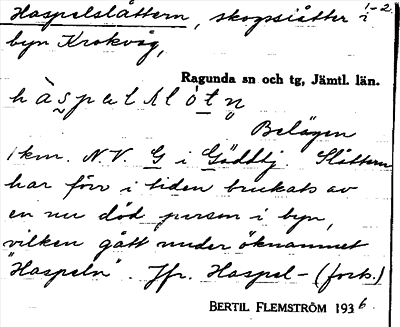 Haspelslåttern, skogsslåtter i 1-2.
byn Krokvåg,
Ragunda sn och tg, Jämtl. län.
Belägen
1 km. N.V. G i Gäddtj. Slåttern
har förr i tiden brukats av
en nu död person i byn,
vilken gått under öknamnet
"Haspeln". Jfr. Haspel- (forts.)
BERTIL FLEMSTRÖM 1936.